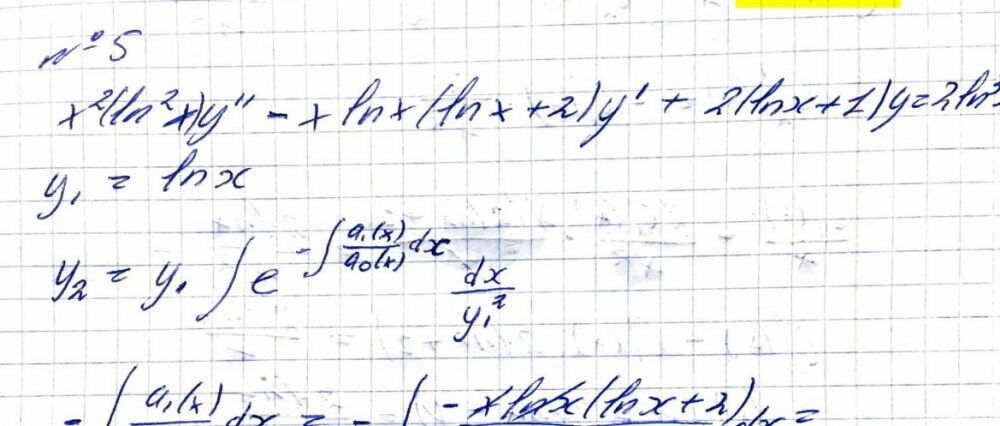 №5
x²(ln²x)y'' - x lnx(lnx+2)y' + 2(lnx+1)y=2ln³
y₁ = lnx
y₂ = y₁ ∫e^(-∫ a₁(x)/a₀(x) dx) dx/y₁²
-∫ a₁(x) dx = -∫ -x lnx(lnx+2) dx =